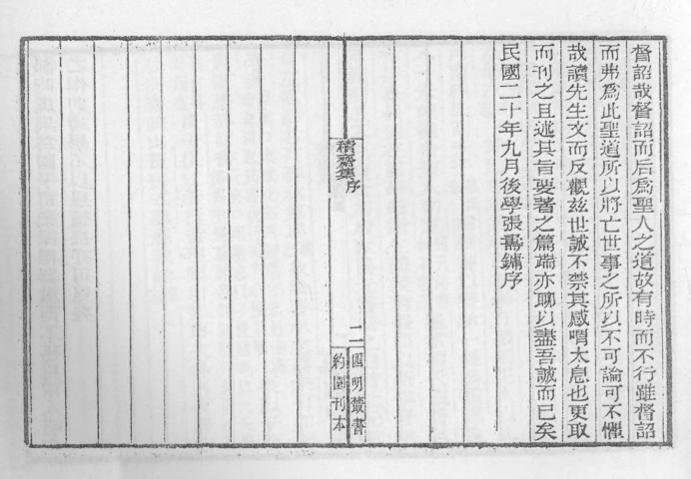 督詔哉督詔而后為聖人之道故有時而不行雖督詔
而弗為此聖道所以將亡世事之所以不可論可不懼
哉讀先生文而反觀茲世誠不禁其感喟太息也更取
而刊之且述其旨要著之篇端亦聊以盡吾誠而已矣
民國二十年九月後學張壽鏞序
積齋集 序
二
四明叢書
約園刊本